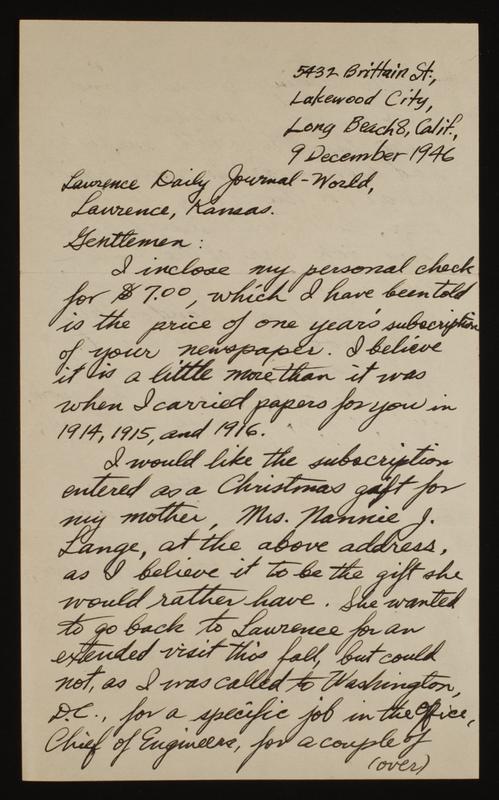 5432 Brittain St.,
Lakewood City,
Long Beach 8, Calif.,
9 December 1946
Lawrence Daily Journal-World,
Lawrence, Kansas.
Gentlemen:
I inclose my personal check
for $7.00, which I have been told
is the price of one year's subscription
of your newspaper. I believe
it is a little more than it was
when I carried papers for you in
1914, 1915, and 1916.
I would like the subscription
entered as a Christmas gift for
my mother, Mrs. Nannie J.
Lange, at the above address,
as I believe it to be the gift she
would rather have. She wanted
to go back to Lawrence for an
extended visit this fall, but could
not, as I was called to Washington,
D.C., for a specific job in the Office,
Chief of Engineers, for a couple of
(over)